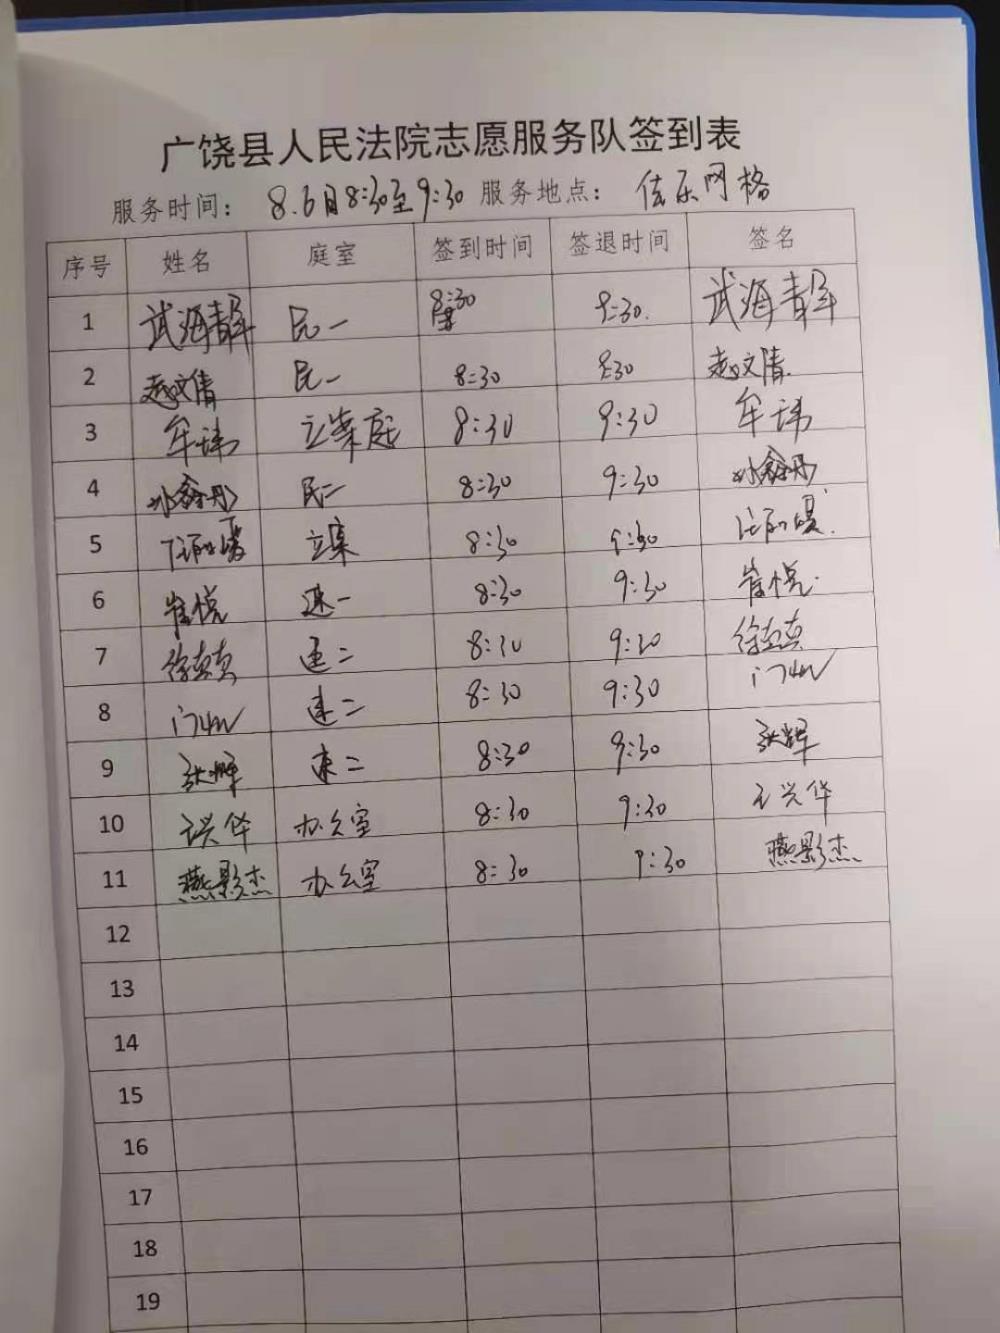 广饶县人民法院志愿服务队签到表
服务时间： 8.6日8:30至9:30 服务地点： 佳乐网格
序号 姓名 庭室 签到时间 签退时间 签名
1 武海静 民一 8:30 9:30. 武海静
2 赵文倩 民一 8:30 9:30 赵文倩
3 牟玮 立案庭 8:30 9:30 牟玮
4 民二 8:30 9:30
5 立案 8:30 9:30
6 崔悦 速一 8:30 9:30 崔悦
7 徐真真 速二 8:30 9:30 徐真真
8 速二 8:30 9:30
9 张辉 速二 8:30 9:30 张辉
10 王兴华 办公室 8:30 9:30 王兴华
11 燕影杰 办公室 8:30 9:30 燕影杰
12
13
14
15
16
17
18
19